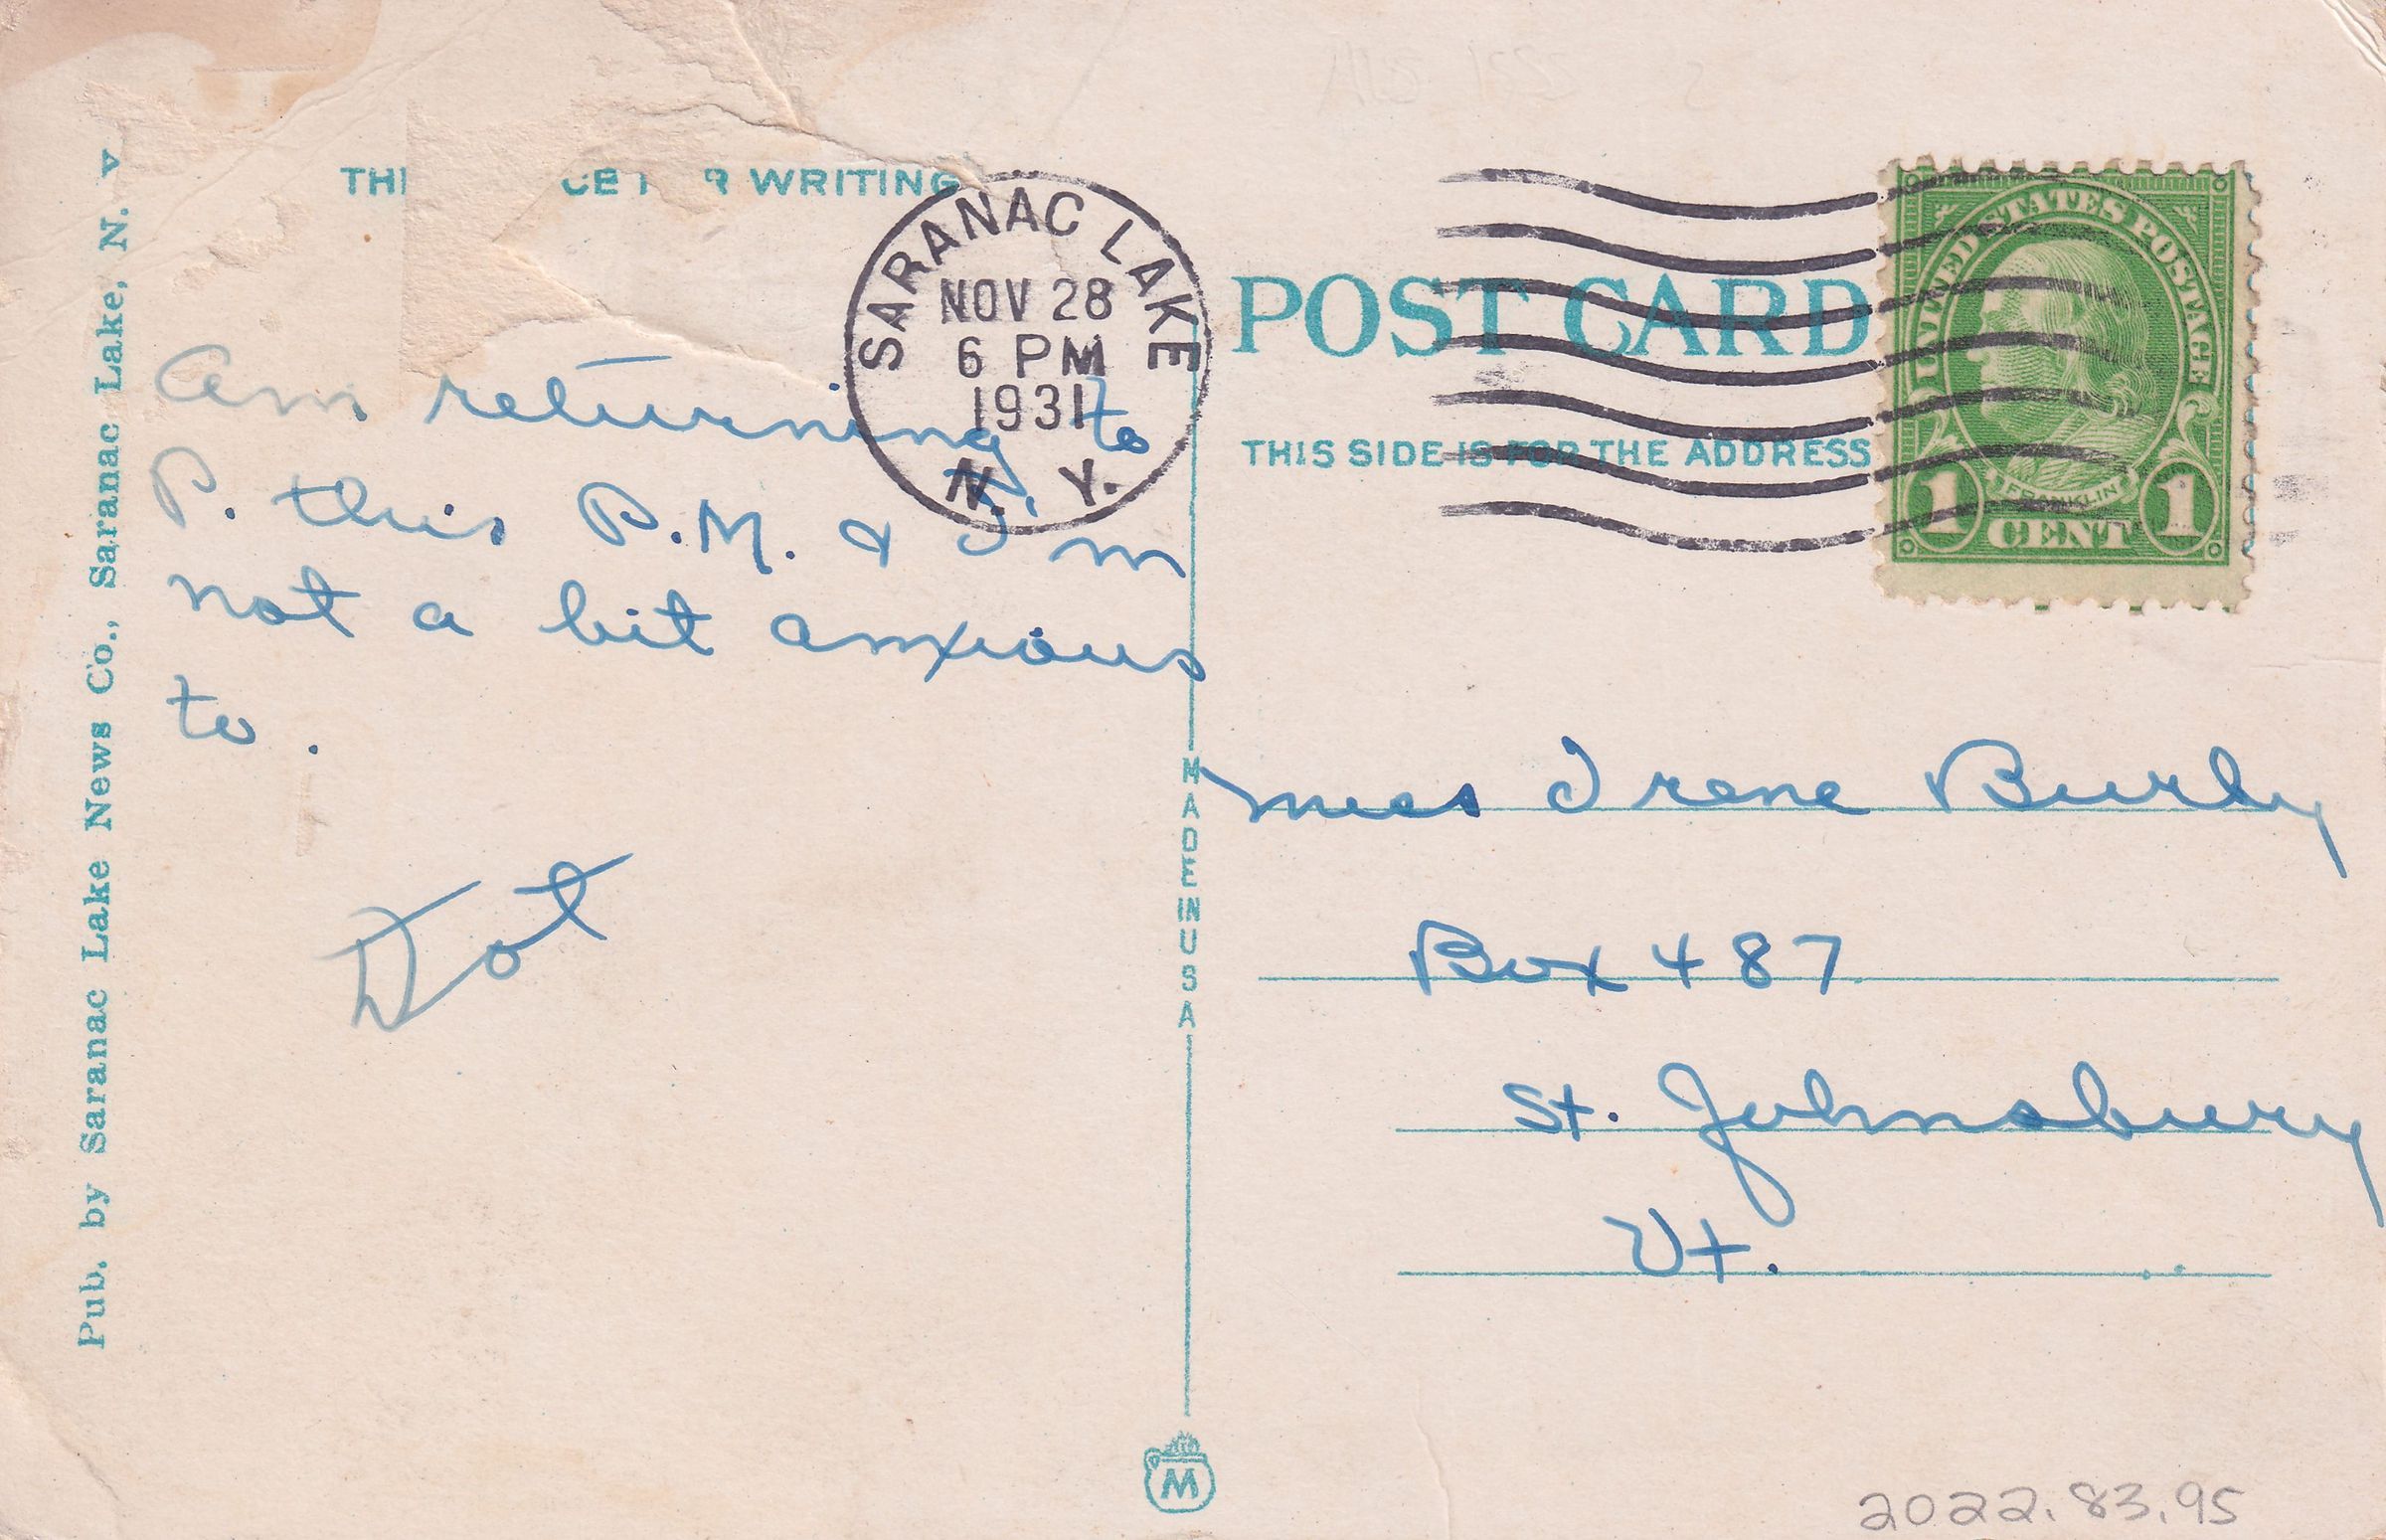 THI CE F R WRITING
SARANAC LAKE
NOV 28
6 PM
1931
N. Y.
Am returning to
P. this P.M. & I'm
not a bit anxious
to.
Dot
Pub. by Saranac Lake News Co., Saranac Lake, N. Y
MADE IN USA
M
POST CARD
THIS SIDE IS FOR THE ADDRESS
UNITED STATES POSTAGE
FRANKLIN
1 CENT 1
Miss Irene Burly
Box 487
St. Johnsbury
Vt.
2022.83.95